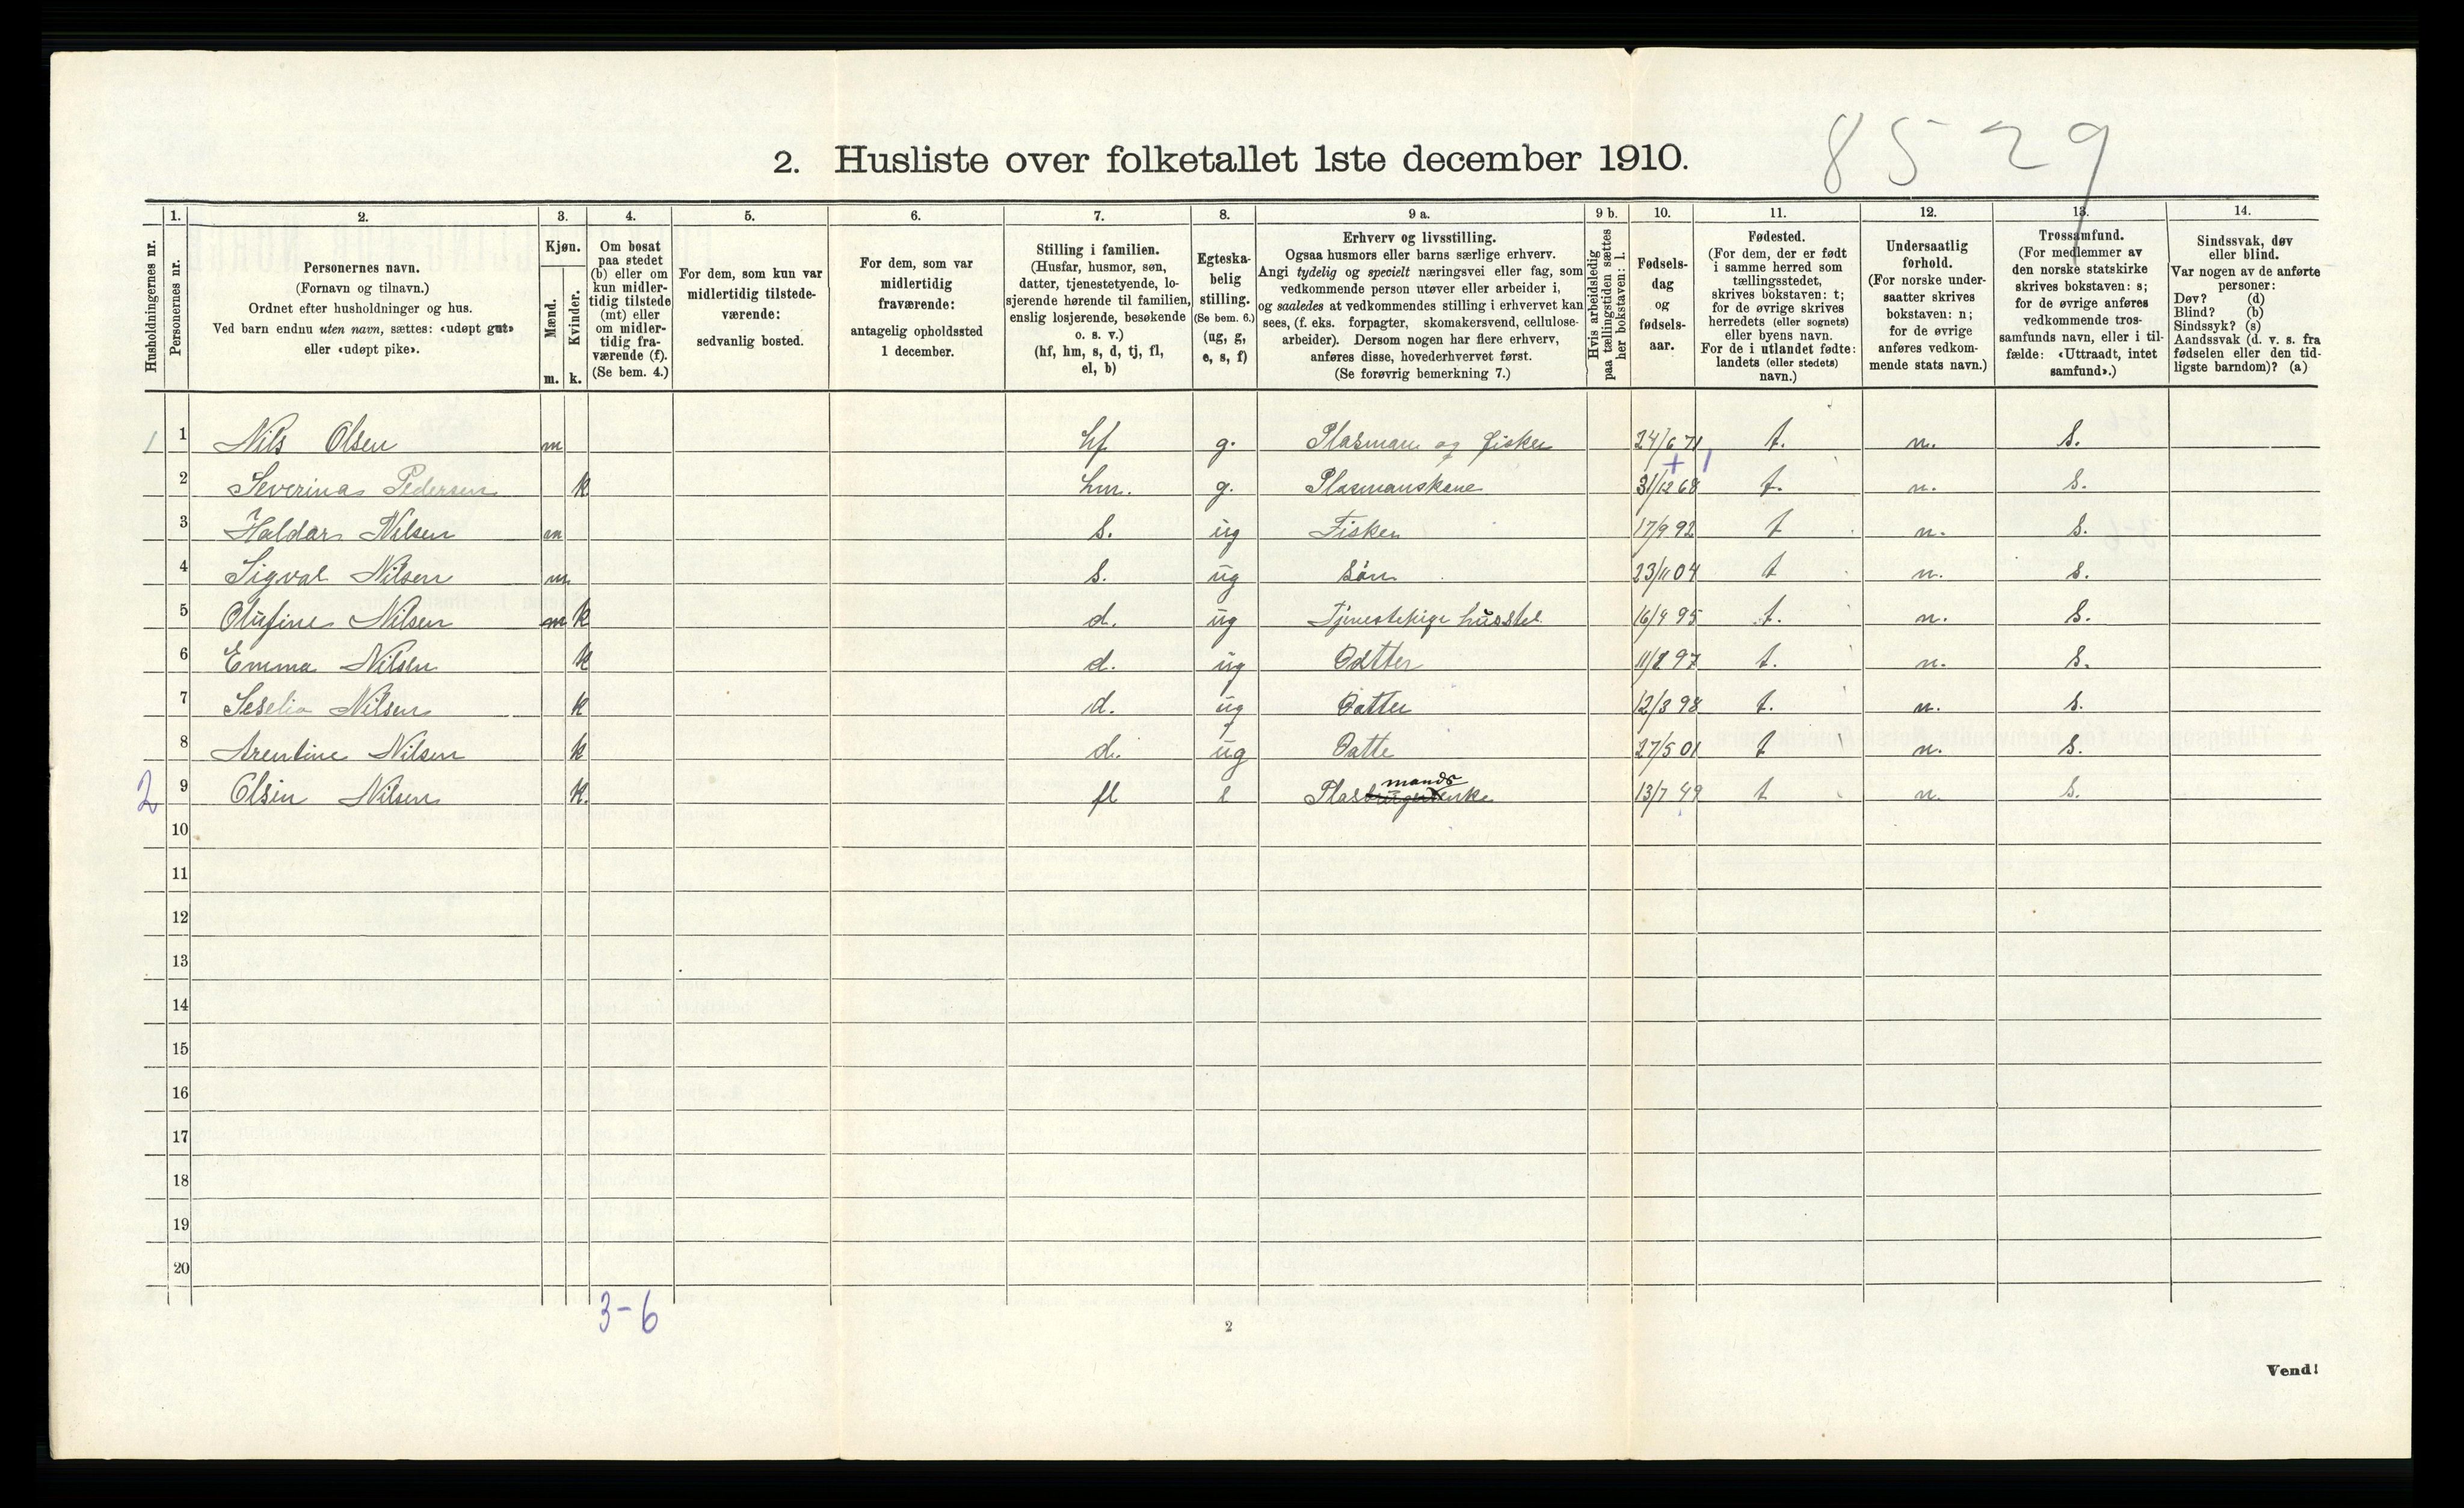 8529
2. Husliste over folketallet 1ste december 1910.
1. 2. 3. 4. 5. 6. 7. 8. 9 a. 9 b. 10. 11. 12. 13. 14.
Husholdningernes nr.
Personernes nr.
Personernes navn.
(Fornavn og tilnavn.)
Ordnet efter husholdninger og hus.
Ved barn endnu uten navn, sættes: «udøpt gut»
eller «udøpt pike».
Kjøn.
Mænd.
Kvinder.
m. k.
Om bosat
paa stedet
(b) eller om
kun midler-
tidig tilstede
(mt) eller
om midler-
tidig fra-
værende (f).
(Se bem. 4.)
For dem, som kun var
midlertidig tilstede-
værende:
sedvanlig bosted.
For dem, som var
midlertidig
fraværende:
antagelig opholdssted
1 december.
Stilling i familien.
(Husfar, husmor, søn,
datter, tjenestetyende, lo-
sjerende hørende til familien,
enslig losjerende, besøkende
o. s. v.)
(hf, hm, s, d, tj, fl,
el, b)
Egteska-
belig
stilling.
(Se bem. 6.)
(ug, g,
e, s, f)
Erhverv og livsstilling.
Ogsaa husmors eller barns særlige erhverv.
Angi tydelig og specielt næringsvei eller fag, som
vedkommende person utøver eller arbeider i,
og saaledes at vedkommendes stilling i erhvervet kan
sees, (f. eks. forpagter, skomakersvend, cellulose-
arbeider). Dersom nogen har flere erhverv,
anføres disse, hovederhvervet først.
(Se forøvrig bemerkning 7.)
Hvis arbeidsledig
paa tællingstiden sættes
her bokstaven: l.
Fødsels-
dag
og
fødsels-
aar.
Fødested.
(For dem, der er født
i samme herred som
tællingsstedet,
skrives bokstaven: t;
for de øvrige skrives
herredets (eller sognets)
eller byens navn.
For de i utlandet fødte:
landets (eller stedets)
navn.)
Undersaatlig
forhold.
(For norske under-
saatter skrives
bokstaven: n;
for de øvrige
anføres vedkom-
mende stats navn.)
Trossamfund.
(For medlemmer av
den norske statskirke
skrives bokstaven: s;
for de øvrige anføres
vedkommende tros-
samfunds navn, eller i til-
fælde: «Uttraadt, intet
samfund».)
Sindssvak, døv
eller blind.
Var nogen av de anførte
personer:
Døv? (d)
Blind? (b)
Sindssyk? (s)
Aandssvak (d. v. s. fra
fødselen eller den tid-
ligste barndom)? (a)
1 1 Nils Olsen m hf g. Plasman og fisker 24/6 71 t. n. s.
+ 1
2 Severina Pedersen k hm. g. Plasmanskone 31/12 68 t. n. s.
3 Haldor Nilsen m s. ug Fisker 17/9 92 t n. s.
4 Sigval Nilsen m s. ug Søn 23/11 04 t n. s.
5 Olufine Nilsen m k d. ug Tjenestepige husstel 16/4 95 t. n. s.
6 Emma Nilsen k d. ug Datter 11/8 97 t. n. s.
7 Seselia Nilsen k d. ug Datter 12/3 98 t. n. s.
8 Arentine Nilsen k d. ug Datte 27/5 01 t n. s.
mands
2 9 Olsin Nilsen k. fl e Plasbrugerenke 13/7 49 t n. s.
10
11
12
13
14
15
16
17
18
19
20
3-6
2
Vend!